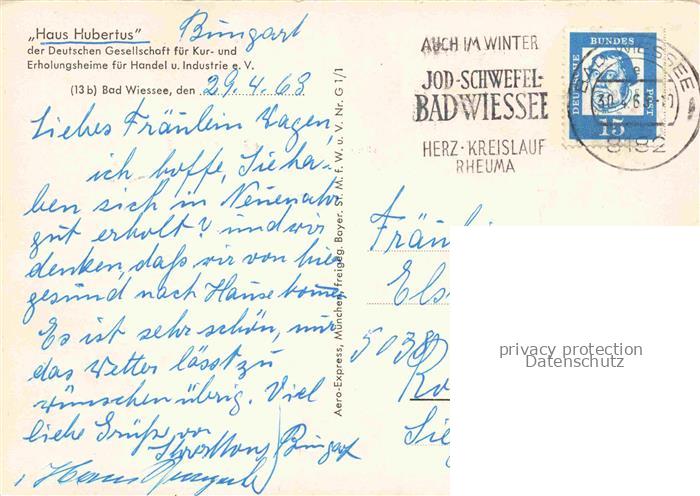 „Haus Hubertus" Bungart
der Deutschen Gesellschaft für Kur- und
Erholungsheime für Handel u. Industrie e. V.
(13 b) Bad Wiessee, den 29.4.63
Liebes Fräulein Hagen,
ich hoffe, Sie ha-
ben sich in Neuenahr
gut erholt? und wir
denken, daß wir von hier
gesund nach Hause kommen
Es ist sehr schön, nur
das Wetter lässt zu
wünschen übrig. Viel
liebe Grüße von
Bungart
Hans
Aero-Express, München, freigeg. Bayer. St. M. f. W. u. V. Nr. G 1/1
AUCH IM WINTER
JOD-SCHWEFEL-
BAD WIESSEE
HERZ·KREISLAUF
RHEUMA
DEUTSCHE BUNDES POST
15
BAD WIESSEE
e
30.4.63-10
8182
Fräulein
Els
5038
Ro
Sie
privacy protection
Datenschutz